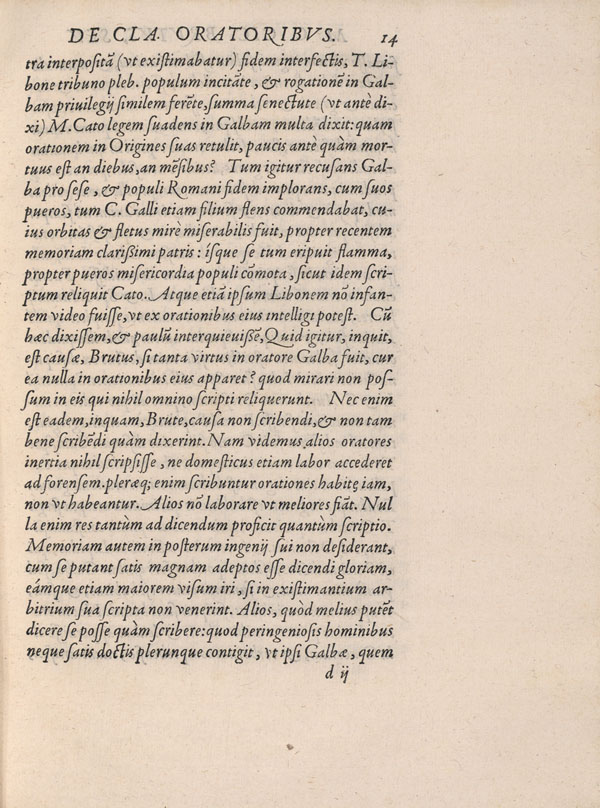 DE CLA. ORATORIBVS. 14
tra interpositã (vt existimabatur) fidem interfectis, T. Li-
bone tribuno pleb. populum incitãte, & rogationẽ in Gal-
bam priuilegij similem ferẽte, summa senectute (vt antè di-
xi) M. Cato legem suadens in Galbam multa dixit: quam
orationem in Origines suas retulit, paucis ante quàm mor-
tuus est an diebus, an mẽsibus? Tum igitur recusans Gal-
ba pro sese, & populi Romani fidem implorans, cum suos
pueros, tum C. Galli etiam filium flens commendabat, cu-
ius orbitas & fletus mirè miserabilis fuit, propter recentem
memoriam clarißimi patris: ísque se tum eripuit flamma,
propter pueros misericordia populi cõmota, sicut idem scri-
ptum reliquit Cato. Atque etiã ipsum Libonem nõ infan-
tem video fuisse, vt ex orationibus eius intelligi potest. Cũ
hæc dixissem, & paulũ interquieuißẽ, Quid igitur, inquit,
est causæ, Brutus, si tanta virtus in oratore Galba fuit, cur
ea nulla in orationibus eius apparet? quod mirari non pos-
sum in eis qui nihil omnino scripti reliquerunt. Nec enim
est eadem, inquam, Brute, causa non scribendi, & non tam
bene scribẽdi quàm dixerint. Nam videmus alios oratores
inertia nihil scripsisse, ne domesticus etiam labor accederet
ad forensem. pleræq; enim scribuntur orationes habitę iam,
non vt habeantur. Alios nõ laborare vt meliores fiãt. Nul
la enim res tantùm ad dicendum proficit quantùm scriptio.
Memoriam autem in posterum ingenij sui non desiderant,
cum se putant satis magnam adeptos esse dicendi gloriam,
eámque etiam maiorem visum iri, si in existimantium ar-
bitrium sua scripta non venerint. Alios, quòd melius putẽt
dicere se posse quàm scribere: quod peringeniosis hominibus
neque satis doctis plerunque contigit, vt ipsi Galbæ, quem
d ij